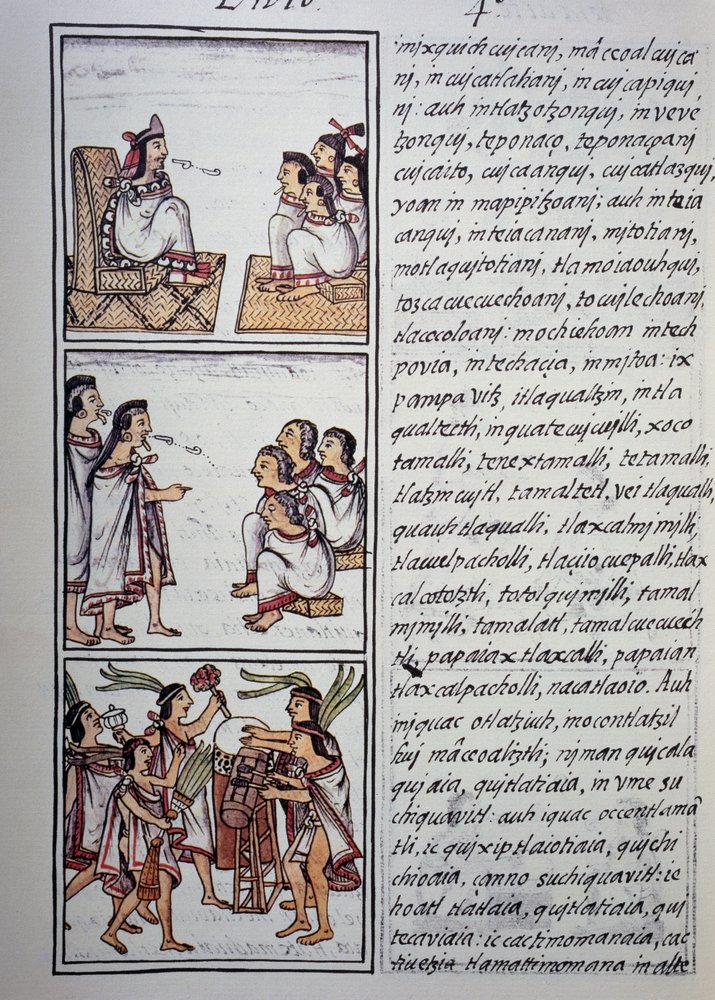 Libro. 4º
mjxquich cujcanj, mãceoal cujca
nj, in cujcatlalianj, in cujcapiquj
nj: auh intlatzotzonquj, in veve
tzonquj, teponaço, teponaçoanj
cujcaito, cujcaanquj, cujcatlazquj,
yoan in mapipitzoanj; auh in teia
canquj, in teiacananj, mjtotianj,
motlaquitotianj, tlamoiaouhquj,
tozcacuecuechoanj, tocujlechoanj,
tlacecoloanj: mochiehoan intech
povia, intechacia, in mjtoa: ix
pampa vitz, itlaqualtzin, in tla
qualtecth, in quatecujcujlli, xoco
tamalli, tenextamalli, tetamalli,
tlatzincujtl, tamaltetl, vei tlaqualli,
quauhtlaqualli, tlaxcalmjmjlli,
tlacuelpacholli, tlaciiocuepalli, tlax
calcototztli, totolqujmjlli, tamal
mjmjlli, tamalatl, tamalcuecuech
tli, papaiaxtlaxcalli, papaian
tlaxcalpacholli, nacatlaoio. Auh
in iquac otlatziuh, in ocontlatzil
huj mãceoaliztli; njman qujcala
qujaia, qujtlatiaia, in vme su
chiquavitl: auh iquac occentlamã
tli, ic quixiptlaiotiaia, qujchi
chioaia, çanno suchiquavitl: ie
hoatl tlatlaia, qujtlatiaia, quj
tecaviaia: ic cactimomanaia, cac
tivetzia tlamattimomana in alte